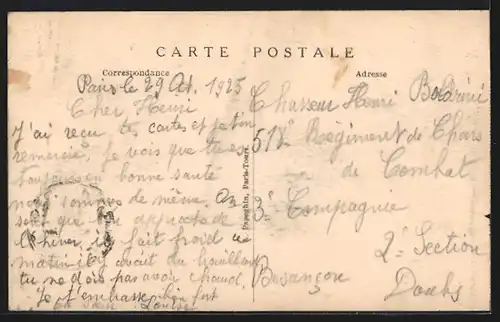 CARTE POSTALE
Correspondance
Adresse
Paris le 29 Oct. 1925
Cher Henri
J'ai reçu tes cartes et je t'en
remercie, je vois que tu es
toujours en bonne santé
nous sommes de même. On
sent que l'on approche de
l'hiver, il fait froid ce
matin il y avait du brouillard
tu ne dois pas avoir chaud.
Je t'embrasse bien fort
ta sœur Louise
Papeghin, Paris-Tours.
Chasseur Henri Boldrini
518e Régiment de Chars
de Combat
3e Compagnie
2e Section
Besançon
Doubs